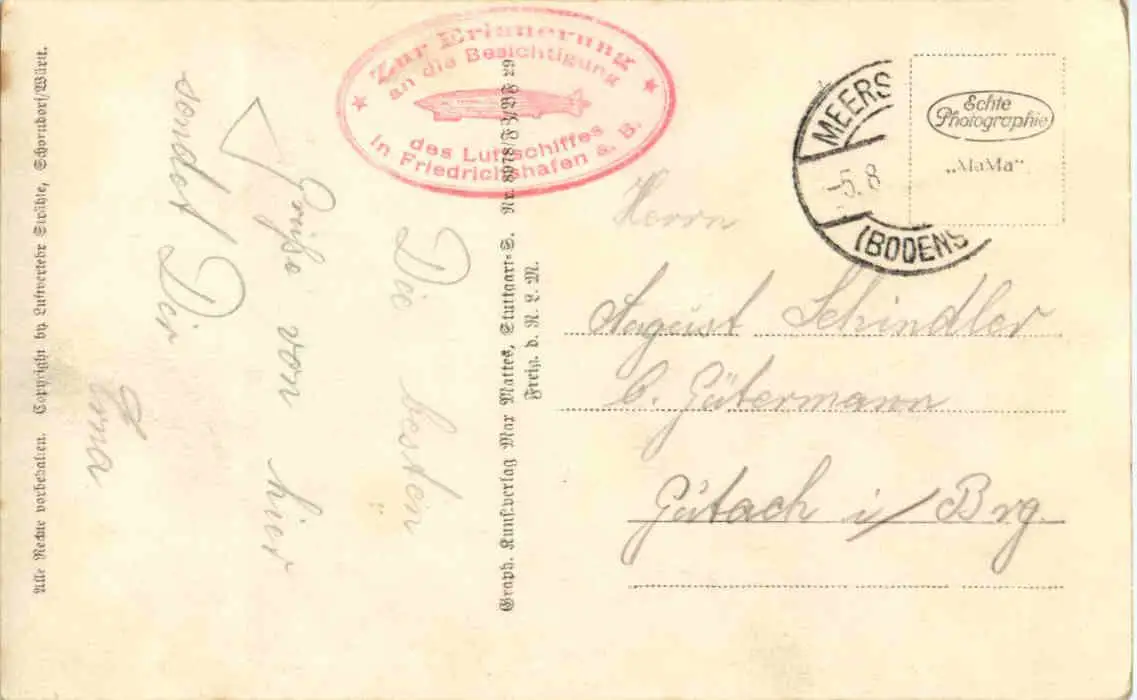 Alle Rechte vorbehalten. Copyright by Luftverkehr Strähle, Schorndorf/Württ.
Zur Erinnerung
an die Besichtigung
des Luftschiffes
in Friedrichshafen a. B.
Die besten
Grüße von hier
sendet Dir
Erna
Graph. Kunstverlag Max Mattes, Stuttgart-S. Nr. 8978/
29
Freig. d. R. L. M.
MEERS
-5. 8
(BODENS
Echte
Photographie
„MaMa“
Herrn
August Schindler
C. Gütermann
Gutach i/ Brg.